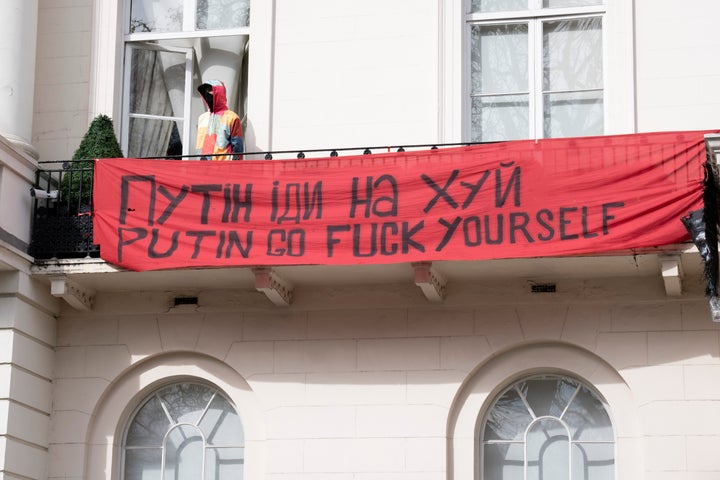 Путін іди на хуй
PUTIN GO FUCK YOURSELF